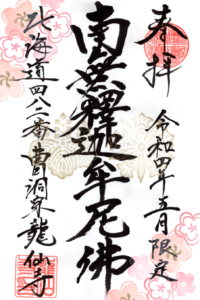 奉拝
令和四年五月限定
南無釋迦牟尼佛
北海道四八二番曹洞宗龍仙寺